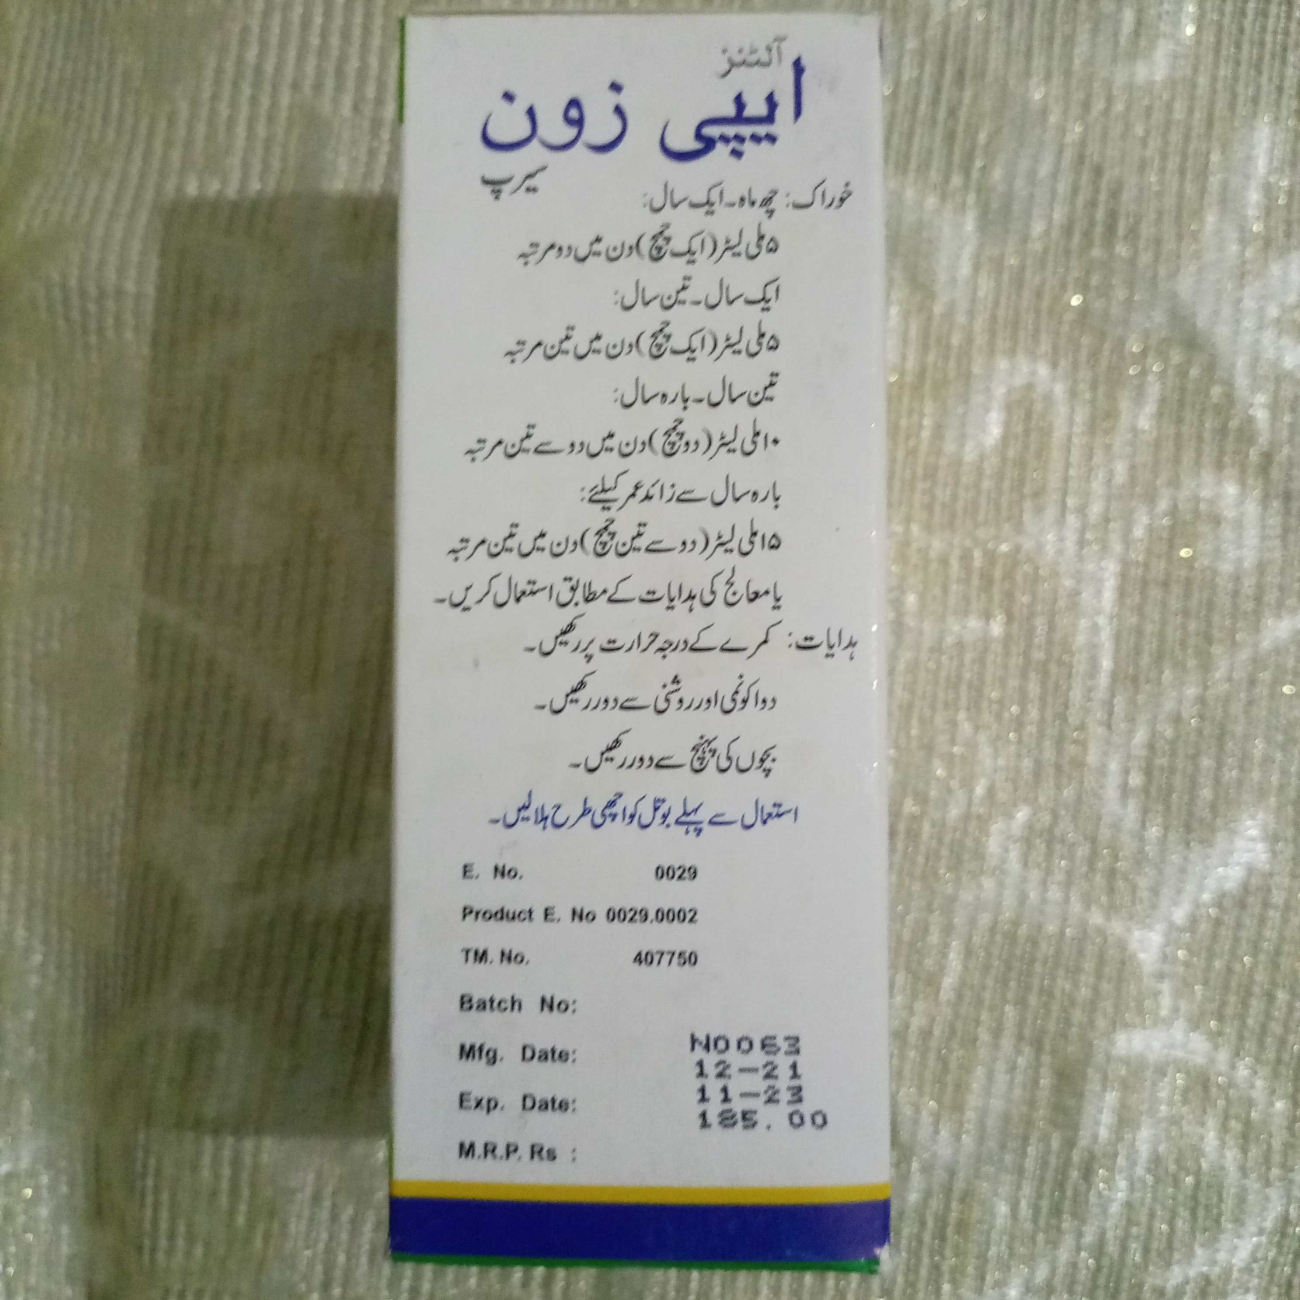 آلٹنز
ایپی زون
سیرپ
خوراک: چھ ماہ۔ایک سال:
۵ملی لیٹر(ایک چمچ)دن میں دو مرتبہ
ایک سال۔تین سال:
۵ملی لیٹر(ایک چمچ)دن میں تین مرتبہ
تین سال۔بارہ سال:
۱۰ملی لیٹر(دو چمچ)دن میں دو سے تین مرتبہ
بارہ سال سے زائد عمر کیلئے:
۱۵ملی لیٹر(دو سے تین چمچ)دن میں تین مرتبہ
یا معالج کی ہدایات کے مطابق استعمال کریں۔
ہدایات: کمرے کے درجہ حرارت پر رکھیں۔
دوا کو نمی اور روشنی سے دور رکھیں۔
بچوں کی پہنچ سے دور رکھیں۔
استعمال سے پہلے بوتل کو اچھی طرح ہلا لیں۔
E. No. 0029
Product E. No 0029.0002
TM. No. 407750
Batch No: N0063
Mfg. Date: 12-21
Exp. Date: 11-23
M.R.P. Rs : 185.00